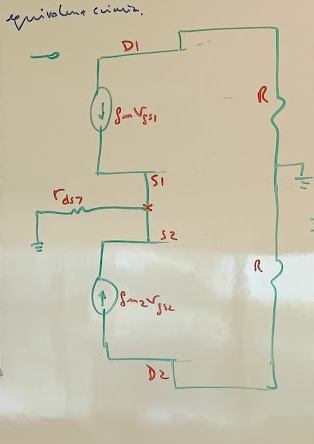 equivalent circuit.
D1
R
gmVgs1
S1
rds7
S2
R
gm2Vgs2
D2